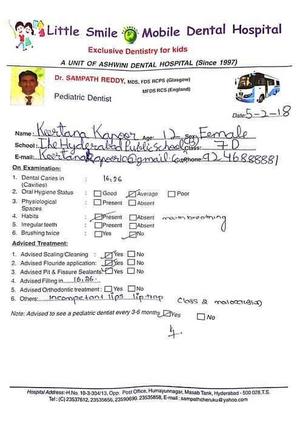 Little Smile Mobile Dental Hospital
Exclusive Dentistry for kids
A UNIT OF ASHWINI DENTAL HOSPITAL (Since 1997)
Dr. SAMPATH REDDY, MDS, FDS RCPS (Glasgow)
MFDS RCS (England)
Pediatric Dentist
Date: 5-2-18
Name: Keertana Kapoor Age: 12 Sex: Female
School: The Hyderabad Public School Class: 7D
E-mail: phone: 9246888881
On Examination:
1. Dental Caries in (Cavities) 16,26
2. Oral Hygiene Status : Good Average Poor
3. Physiological Spaces : Present Absent
4. Habits : Present Absent mouth breathing
5. Irregular teeth : Present Absent
6. Brushing twice : Yes No
Advised Treatment:
1. Advised Scaling/Cleaning : Yes No
2. Advised Flouride application: Yes No
3. Advised Pit & Fissure Sealants Yes No
4. Advised Filling in 16,26.
5. Advised Orthodontic treatment : Yes No
6. Others: Incompetent lips, lip trap Class
Note: Advised to see a pediatric dentist every 3-6 months Yes No
Hospital Address: H.No. 10-3-304/13, Opp. Post Office, Humayunnagar, Masab Tank, Hyderabad - 500 028, T.S.
Tel: (C) 23537612, 23535656, 23590690, 23535858, E-mail : sampathcheruku@yahoo.com